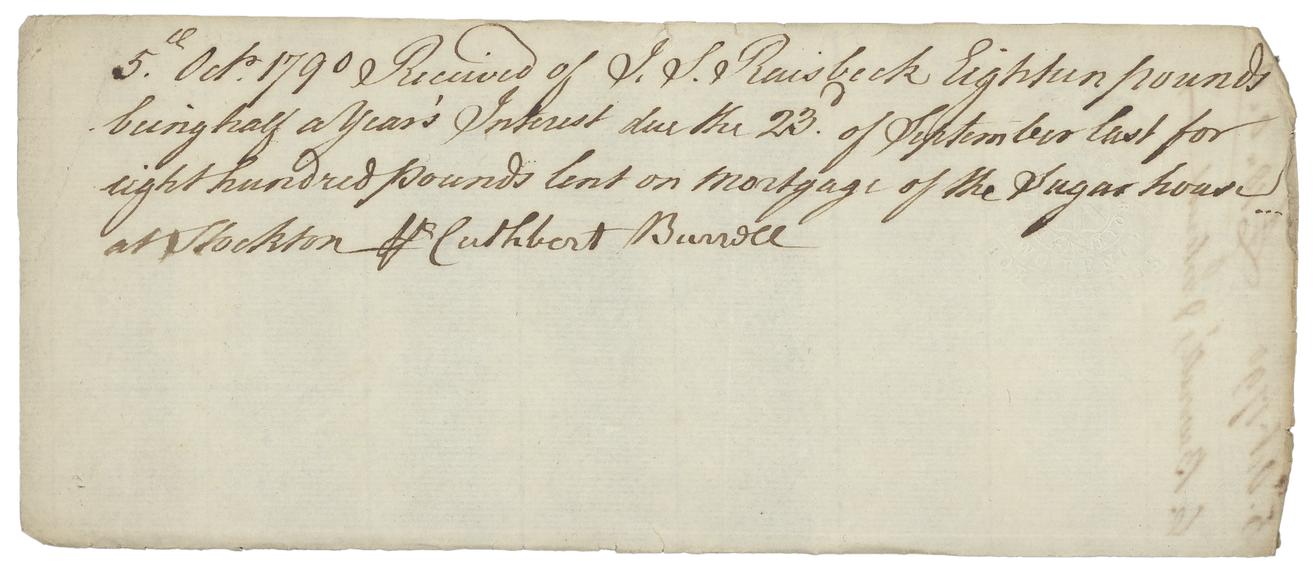 5.th Octr. 1790 Received of J. S. Raisbeck Eighteen pounds
being half a Year's Interest due the 23.d of September last for
eight hundred pounds lent on Mortgage of the Sugar house
at Stockton pr Cuthbert Burrell